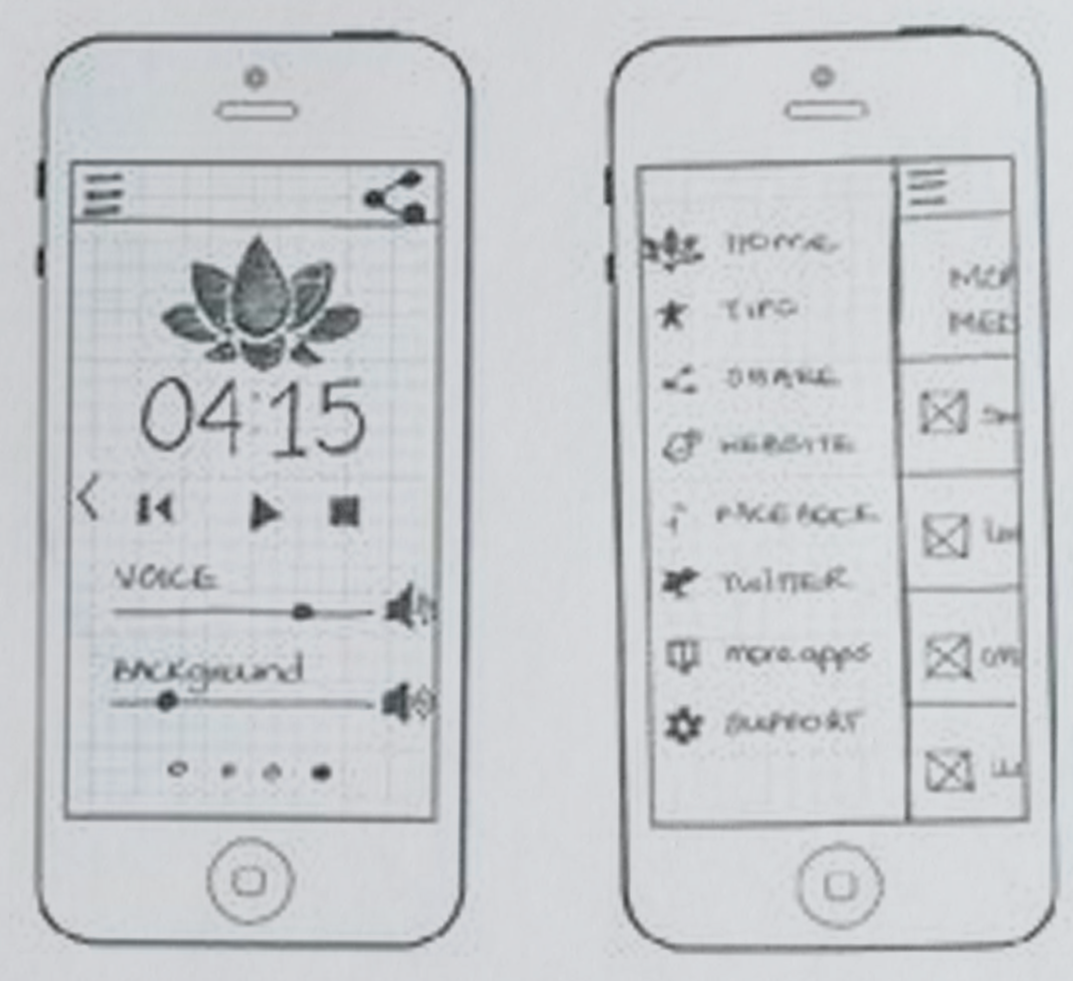 04:15
VOICE
BACKground
HOME
TIPS
SHARE
WEBSITE
FACEBOOK
TWITTER
more apps
SUPPORT